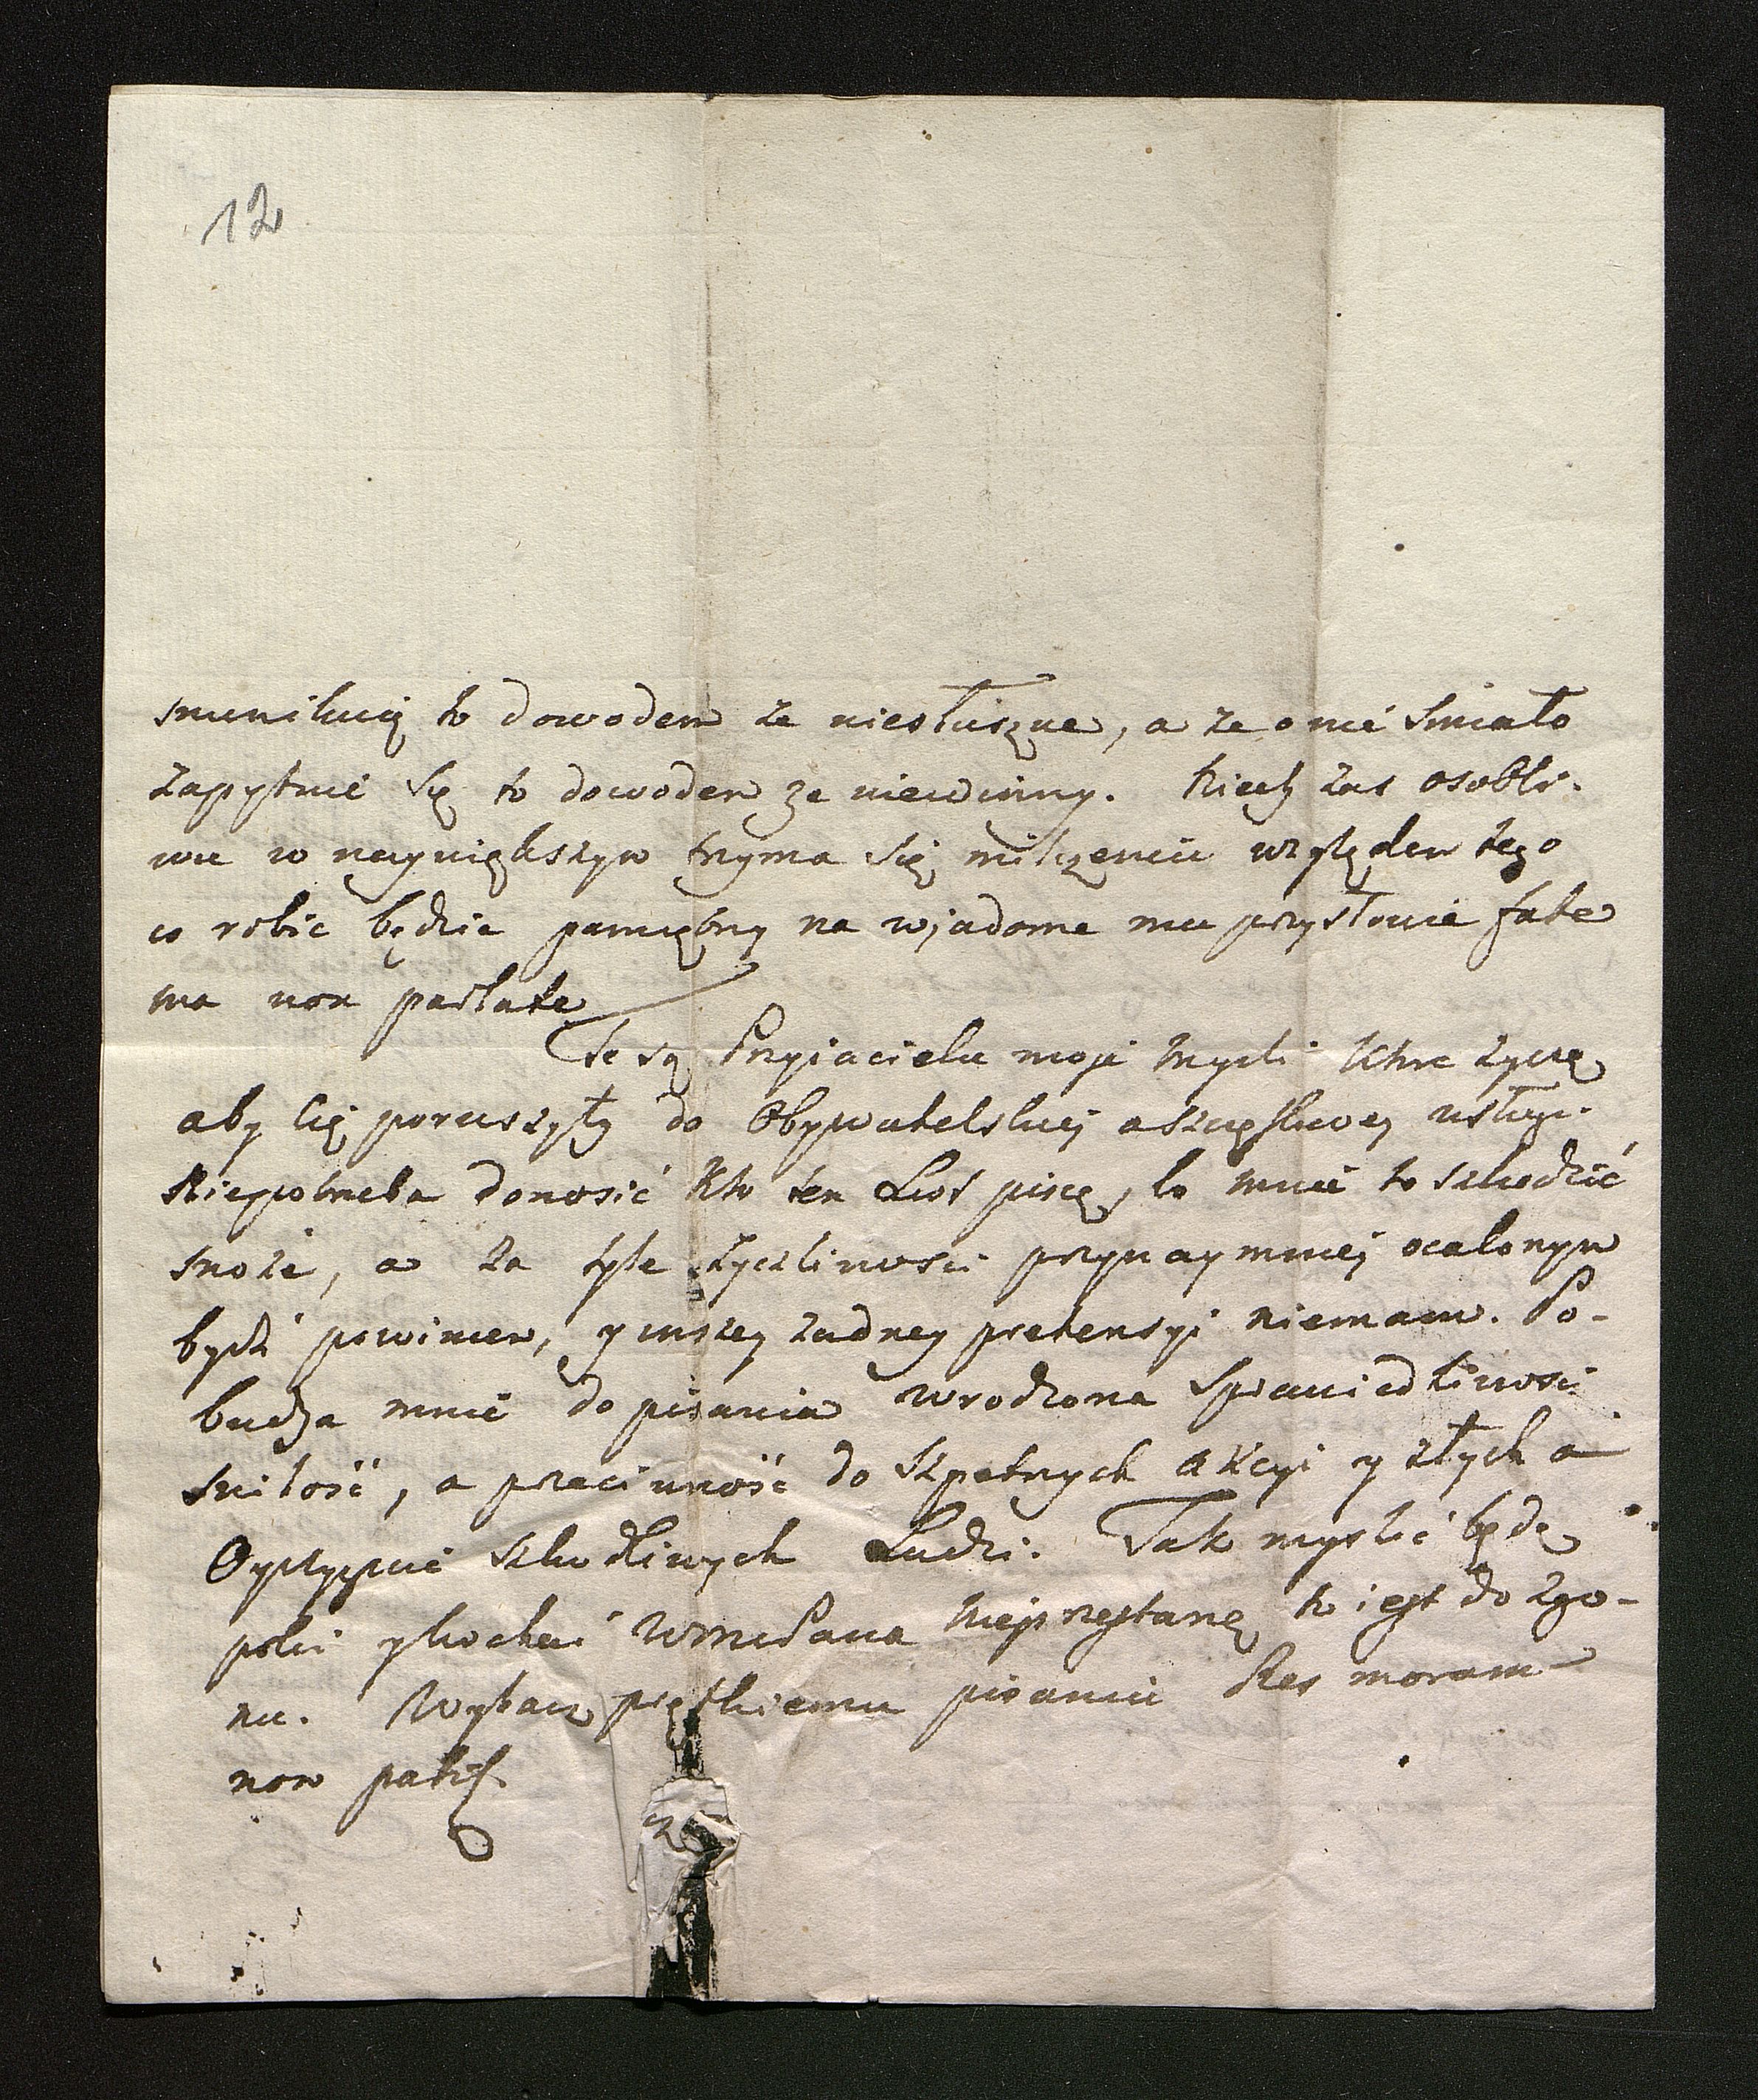 12
to dowodem ze niesłuszne, a ze o nié smiało
zapytuie Się to dowodem ze niewinny. Niech zas osobli-
wie w naywiększym trzyma się milczeniu względem tego
co robic będzie pamiętny na wjadome mu przysłowie fate
ma non parlate
Te są Przyiacielu moje mysli które zyczę
aby Cię poruszyły do Obywatelskiej a szczęsliwey usługi.
Niepotrzeba donosić Kto ten List pisze, bo mnie to szkodzić
może, a za tyle zyczliwosci przynaymniej ocalonym
bydź powinien, y inszey zadney pretensyi niemam. Po-
budza mnie do pisania wrodzona Sprawiedliwosci
miłość, a przeciwność do szpetnych akcyi y złych a
Oyczyznie szkodliwych Ludzi. Tak myslić będę
póki y kochać WmcPana nieprzestanę to iest do zgo-
nu. Wybacz prętkiemu pisaniu Res moram
non patit